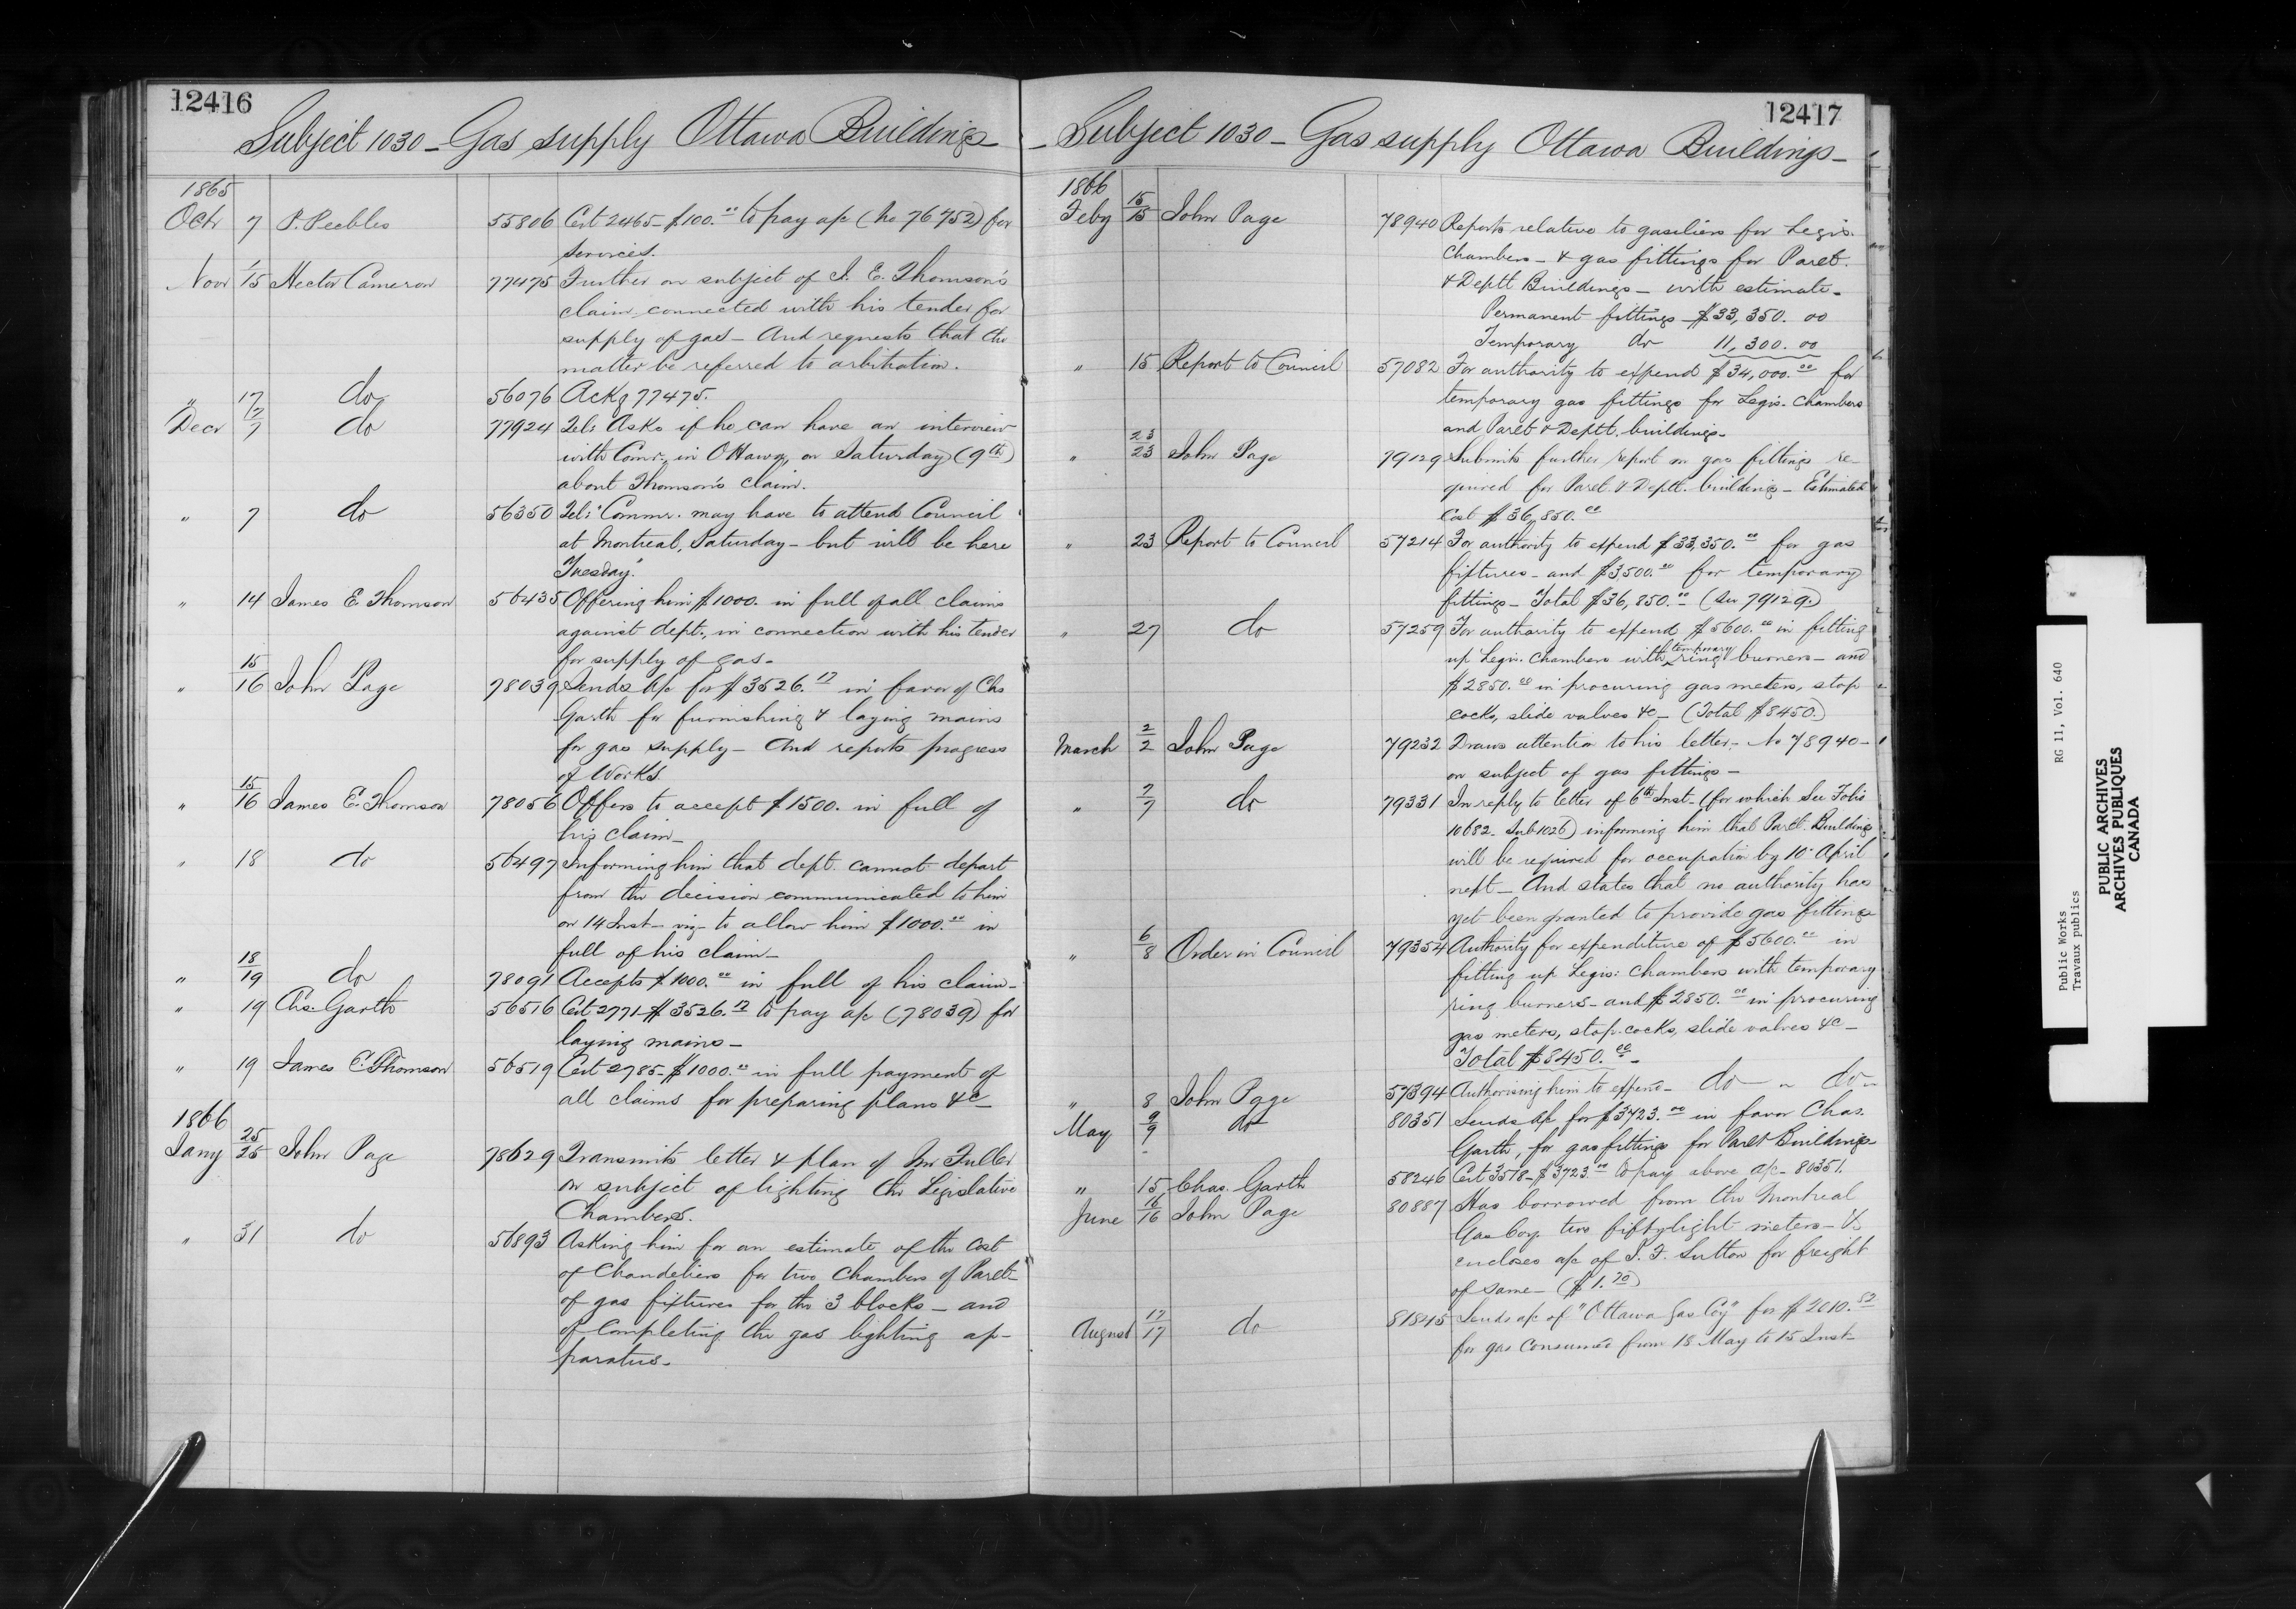 12416
Subject 1030 - Gas supply Ottawa Buildings
1865
Octr 7 P. Peebles 55806 Cert 2465 - $100.00 to pay a/c (No 76752) for
services.
Novr 1/15 Hector Cameron 77475 Further on subject of J. E. Thomson's
claim connected with his tender for
supply of gas - And requests that the
matter be referred to arbitration.
" 17 do 56076 Ackg 77475.
Decr 7/7 do 77924 Tel: Asks if he can have an interview
with Comr., in Ottawa, on Saturday (9th)
about Thomson's claim.
" 7 do 56350 Tel: "Commr. may have to attend Council
at Montreal, Saturday - but will be here
Tuesday."
" 14 James E. Thomson 56435 Offering him $1000. in full of all claims
against dept., in connection with his tender
for supply of gas -
" 15/16 John Page 78039 Sends a/c for $3526.17 in favor of Chs
Garth for furnishing & laying mains
for gas supply - And reports progress
of Works.
" 15/16 James E. Thomson 78056 Offers to accept $1500. in full of
his claim -
" 18 do 56497 Informing him that dept. cannot depart
from the decision communicated to him
on 14 Inst - viz - to allow him $1000.00 in
full of his claim -
" 18/19 do 78091 Accepts $1000.00 in full of his claim -
" 19 Chs. Garth 56516 Cert 2771 - $3526.17 to pay a/c (78039) for
laying mains -
" 19 James E. Thomson 56519 Cert 2785 - $1000.00 in full payment of
all claims for preparing plans &c -
1866
Jany 25/25 John Page 78629 Transmits letter & plan of Mr Fuller
on subject of lighting the Legislative
Chambers.
" 31 do 56893 Asking him for an estimate of the cost
of Chandeliers for two Chambers of Parlt -
of gas fixtures for the 3 blocks - and
of completing the gas lighting ap-
paratus -
12417
- Subject 1030 - Gas supply Ottawa Buildings -
1866
Feby 15/15 John Page 78940 Reports relative to gaseliers for Legis.
Chambers - & gas fittings for Parlt.
& Deptl Buildings - with estimate -
Permanent fittings - $33,350.00
Temporary do 11,300.00
" 15 Report to Council 57082 For authority to expend $34,000.00 for
temporary gas fittings for Legis. Chambers
and Parlt & Deptl. buildings -
" 23/23 John Page 79129 Submits further report on gas fittings re-
quired for Parlt. & Deptl. buildings - Estimated
Cost $36,850.00
" 23 Report to Council 57214 For authority to expend $33,350.00 for gas
fixtures - and $3,500.00 for temporary
fittings - Total $36,850.00 (See 79129.)
" 27 do 57259 For authority to expend $5600.00 in fitting
up Legis. Chambers with temporary ring burners - and
$2850.00 in procuring gas meters, stop
cocks, slide valves &c - (Total $8450.)
March 2/2 John Page 79232 Draws attention to his letter - No 78940 -
on subject of gas fittings -
" 7/7 do 79331 In reply to letter of 6th Inst - (for which See Folio
10682 - Sub 1026) informing him that Parlt. Buildings
will be required for occupation by 10 April
next - And states that no authority has
yet been granted to provide gas fittings
" 6/8 Order in Council 79354 Authority for expenditure of $5600.00 in
fitting up Legis: Chambers with temporary
ring burners - and $2850.00 in procuring
gas meters, stop-cocks, slide valves &c -
Total $8450.00 -
" 8 John Page 57394 Authorising him to expend - do - " do -
May 9/9 do 80351 Sends a/c for $3723.00 in favor Chas.
Garth, for gas fittings for Parlt Buildings
" 15 Chas. Garth 58246 Cert 3518 - $3723.00 to pay above a/c - 80351.
June 16/16 John Page 80887 Has borrowed from the Montreal
Gas Coy. two fifty light meters - &
encloses a/c of J. F. Sutton for freight
of same - ($1.70)
August 17/17 do 81845 Sends a/c of "Ottawa Gas Coy" for $2010.52
for gas consumed from 18 May to 15 Inst -
Public Works RG 11, Vol. 640
Travaux publics
PUBLIC ARCHIVES
ARCHIVES PUBLIQUES
CANADA